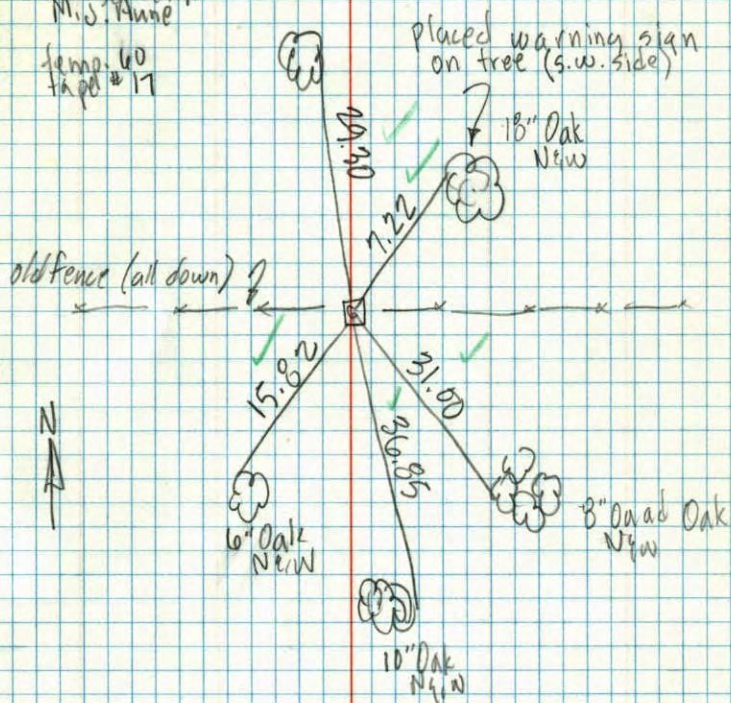 M.J. Aune
temp. 60
tape # 17
placed warning sign
on tree (s.w. side)
18" Oak
N&W
29.30
7.22
old fence (all down)
15.82
31.00
36.85
N
6" Oak
N&W
8" Quad Oak
N&W
10" Oak
N&W